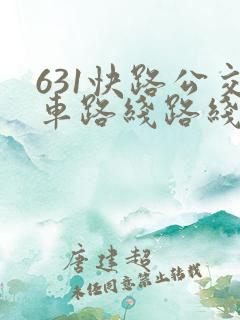 631快路公交
車路綫路綫
唐建超
未经同意禁止转载